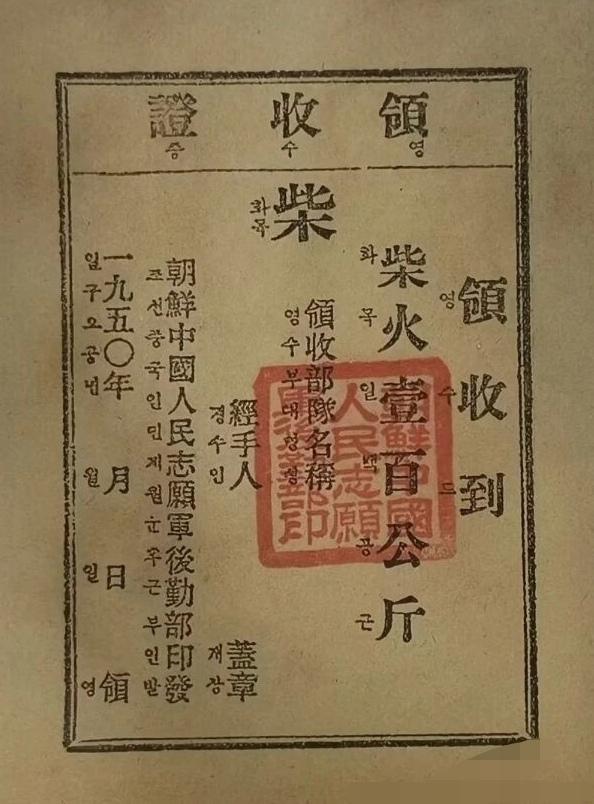 領收證
영수증
領收到
영수드
柴火壹百公斤
화목일백공근
柴
화목
領收部隊名稱
영수부대
經手人 蓋章
경수인 재장
朝鮮中國人民志願軍後勤部印發
조선중국인민지원군후근부인발
一九五〇年 月 日 領
일구오공년 월 일 영
朝鮮中國
人民志願
軍後勤部印